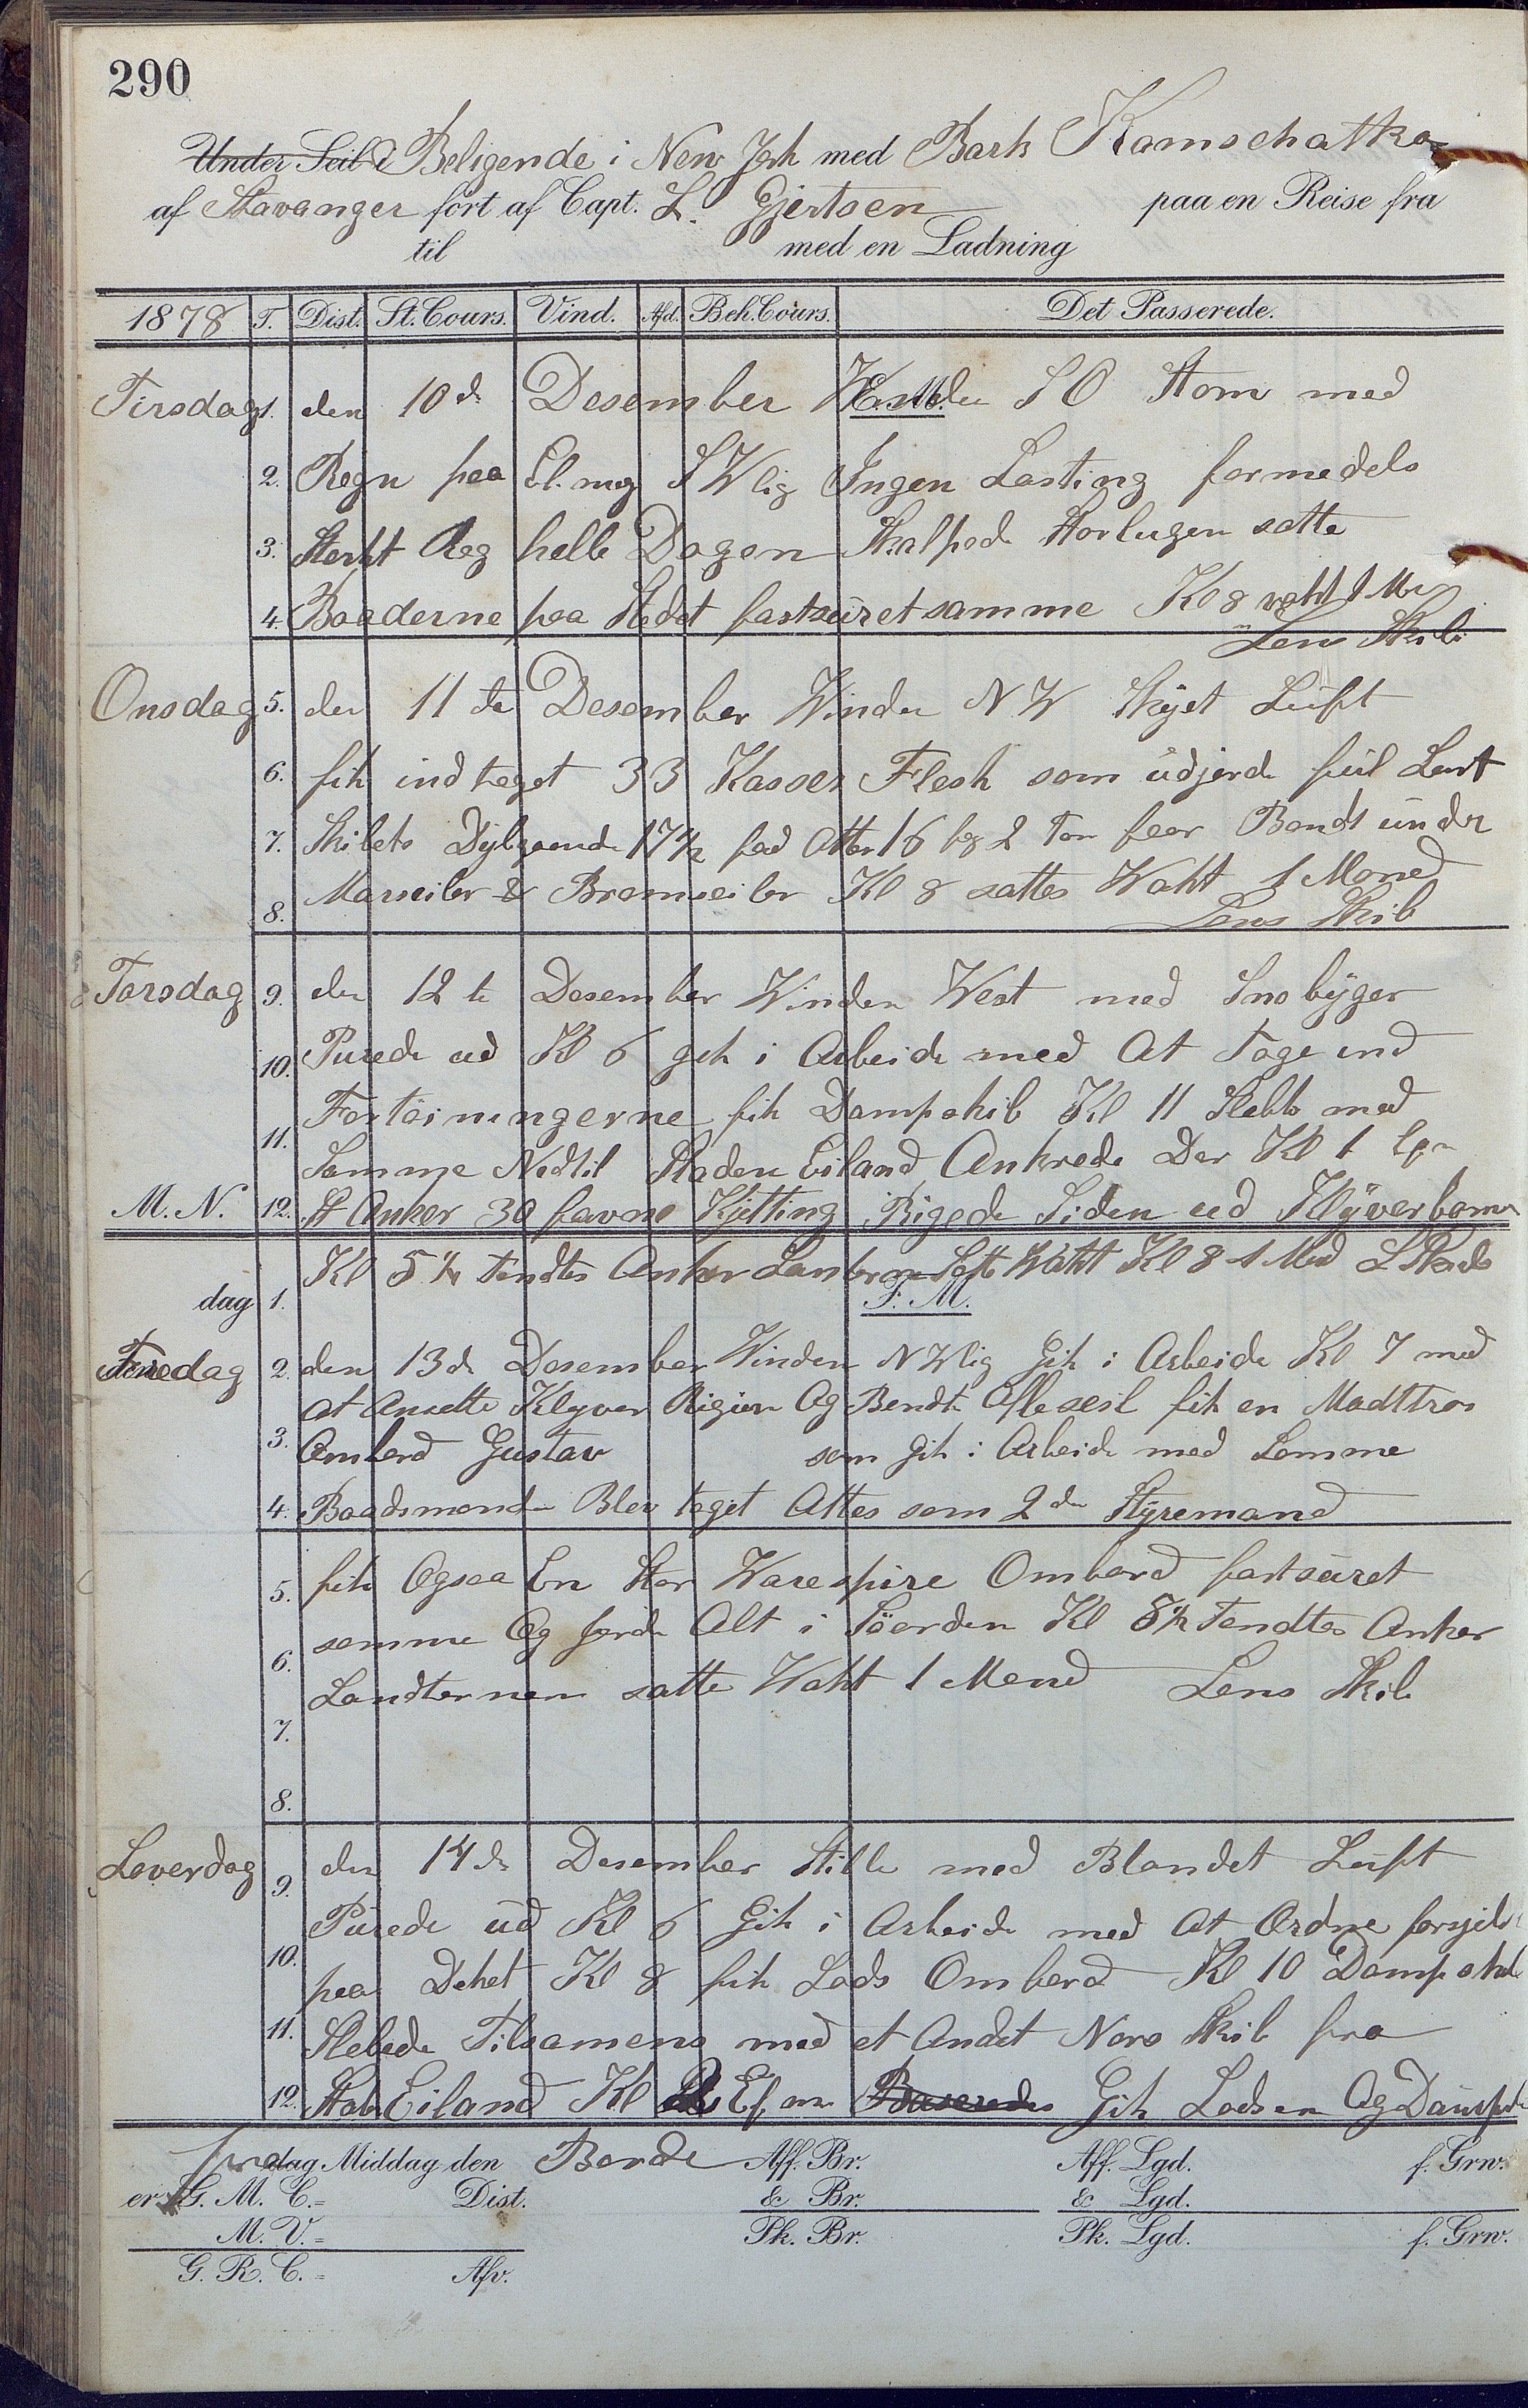 290
Under Seil Beligende i New Jork med Bark Kamschatka
af Stavanger fört af Capt. L. Gjertsen paa en Reise fra
til med en Ladning
1878 T. Dist. St. Cours. Vind. Afd. Beh. Cours. Det Passerede.
Tirsdag 1. den 10d Desember E. M. S O Stom med
2. Regn paa El. mg S W lig Ingen Lasting formedels
3. Sterkt Reg helle Dagen Skalpede Storlugen satte
4. Baaderne paa Stedet fastsüret samme Kl 8 waht 1 Man
Lens Skib
Onsdag 5. den 11 te Desember Winden N W Skyet Luft
6. fik indtaget 33 Kasser Flesk som üdjorde fül Last
7. Skibets Dybgaende 17 1/2 fod Atter 16 fog 2 Tom foor Bendt ünder
8. Marseiler & Bramseiler Kl 8 sattes Waht 1 Mand
Lens Skib
Torsdag 9. den 12 te Desember Winden West med Snobÿger
10. Purede ud Kl 6 gik i Arbeide med At Tage ind
11. Fortöiningerne fik Dampskib Kl 11 Slebte med
Samme Nedtil Staden Eiland Ankrede Der Kl 1
M. N. 12. St Anker 30 favne Kjetting Rigede Siden ud Klÿverbomen
Kl 5 1/2 tendtes Anker Lanteren Satte Waht Kl 8 1 Mad L Skib
dag 1. F. M.
Fredag 2. den 13d Desember Winden N W lig Gik i Arbeide Kl 7 med
at Ansette Klyver Rigien Og Bendte seil fik en Madttros
3. Ombord Gustav som Gik i Arbeide med Somme
4. Baadsmanden Blev taget Attes som 2den Stÿremand
5. fik Ogsaa En Stor Warespire Ombord fastsüret
6. samme Og jorde Alt i Söerden Kl 5 1/2 Tendtes Anker
Landternen satte Waht 1 Mand Lens Skib
7.
8.
Loverdag 9. den 14de Desember Stille med Blandet Lüft
Pürede üd Kl 6 Gik i Arbeide med At Ordne
10. paa Deket Kl 8 fik Lods Ombord Kl 10 Dampskib
11. Slebede Tilsamens med et Andet Nors Skib fra
12. Staten Eiland Kl Ef m Gik Lodsen Og Dampsk
fra Borde
dag Middag den Aff. Br. Aff. Lgd. f. Grw.
er G. M. C.= Dist. & Br. & Lgd.
M. V.= Pk. Br. Pk. Lgd. f. Grw.
G. R. C.= Afv.